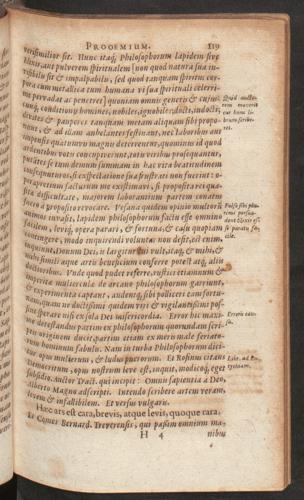 PROOEMIUM. 119
verisimilior sit. Hunc itaq; Philosophorum lapidem sive
Elixir, aut pulverem spiritualem (non quod natura sua in-
visibilis sit & impalpabilis, sed quod tanquam spiritus cor-
pora cum metallica tum humana vi sua spirituali celerri-
me pervadat ac penetret) quoniam omnis generis & cujus-
cunq; conditionis homines, nobiles, ignobiles, docti, indocti,
& pauperes tanquam metam aliquam sibi propo-
& ad illam ambulantes festinant, nec laboribus aut
impensis quibusvis magnis deterrentur, quominus id quod
votis concupiverunt, totis viribus prosequantur,
se tum demum summam in hac vita beatitudinem
si ex spectatione sua frustrati non fuerint: o-
precium facturum me existimavi, si proposita res quan-
difficultate, majorem laborantium partem conatu
suo a proposito revocare. Vesana quidem opinio multorum
animos invasit, lapidem philosophorum factu esse omnino
facilem, levis, opera parari, & fortuna, & casu quopiam
contingere, modo inquirendi voluntas non desit, est enim,
Donum Dei, is largitur cui vult, itaq; & mihi, &
simili aeque artis beneficium conferre potest atq; aliis
doctoribus. Unde quod pudet referre, rustici etiamnum &
imperita muliercula de arcano philosophorum garriunt,
experimenta captant, audent, sibi polliceri eam fortu-
nam, quam ut doctissimi quidem viri & vigilantissimi pos-
sint sperare nisi ex sola Dei misericordia. Error hic maxi-
me detestandus partim ex philosophorum quorundam scri-
ptis, originem ducit, partim etiam ex meris male feriato-
rum hominum fabulis. Nam in turba Philosophorum dici-
tur, opus mulierum, & ludus puerorum. Et Rosinus citans
Democritum, opus nostrum leve est, inquit, modicoq; eget
auxilio. Auctor Tract. qui incipit: Omnis sapientia a Deo,
Alberto Magno adscripti. Intendo scribere artem veram,
levem & infallibilem. Et versus vulgaris.
Haec ars est cara, brevis, atque levis, quoque rara.
Et Comes Bernard. Treverensis, qui passim omnium ma-
H 4 nibus
Quid aucto-
rem moverit
ut hunc li-
brum scribe-
ret.
Error
Libr. ad